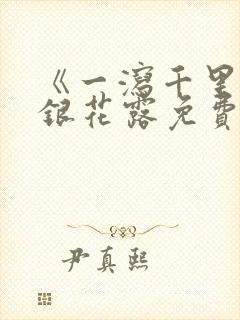 《一瀉千里
銀花露免費
尹真熙